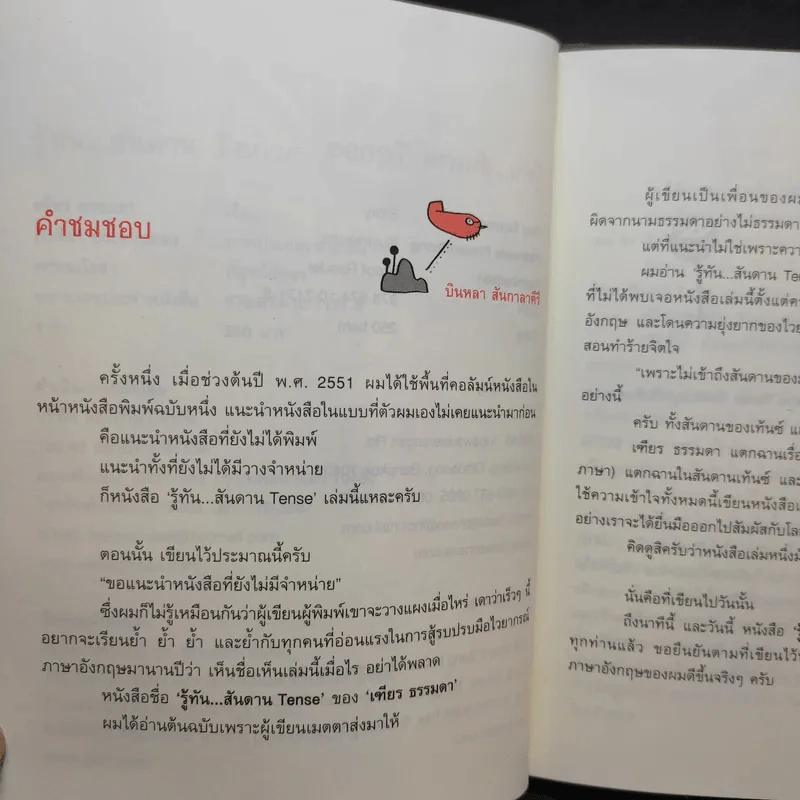 คำชมชอบ
บินหลา สันกาลาคีรี
ครั้งหนึ่ง เมื่อช่วงต้นปี พ.ศ. 2551 ผมได้ใช้พื้นที่คอลัมน์หนังสือใน
หน้าหนังสือพิมพ์ฉบับหนึ่ง แนะนำหนังสือในแบบที่ตัวผมเองไม่เคยแนะนำมาก่อน
คือแนะนำหนังสือที่ยังไม่ได้พิมพ์
แนะนำทั้งที่ยังไม่ได้มีวางจำหน่าย
ก็หนังสือ ‘รู้ทัน...สันดาน Tense’ เล่มนี้แหละครับ
ตอนนั้น เขียนไว้ประมาณนี้ครับ
“ขอแนะนำหนังสือที่ยังไม่มีจำหน่าย”
ซึ่งผมก็ไม่รู้เหมือนกันว่าผู้เขียนผู้พิมพ์เขาจะวางแผงเมื่อไหร่ เดาว่าเร็วๆ นี้
อยากจะเรียนย้ำ ย้ำ ย้ำ และย้ำกับทุกคนที่อ่อนแรงในการสู้รบปรบมือไวยากรณ์
ภาษาอังกฤษมานานปีว่า เห็นชื่อเห็นเล่มนี้เมื่อไร อย่าได้พลาด
หนังสือชื่อ ‘รู้ทัน...สันดาน Tense’ ของ ‘เฑียร ธรรมดา’
ผมได้อ่านต้นฉบับเพราะผู้เขียนเมตตาส่งมาให้
ผู้เขียนเป็นเพื่อนของผม
ผิดจากนามธรรมดาอย่างไม่ธรรมดา
แต่ที่แนะนำไม่ใช่เพราะความ
ผมอ่าน ‘รู้ทัน...สันดาน Ten
ที่ไม่ได้พบเจอหนังสือเล่มนี้ตั้งแต่
อังกฤษ และโดนความยุ่งยากของไวย
สอนทำร้ายจิตใจ
“เพราะไม่เข้าถึงสันดานของ
อย่างนี้
ครับ ทั้งสันดานของเท้นซ์ แ
เฑียร ธรรมดา แตกฉานเรื่อ
ภาษา) แตกฉานในสันดานเท้นซ์ และ
ใช้ความเข้าใจทั้งหมดนี้เขียนหนังสือ
อย่างเราจะได้ยื่นมือออกไปสัมผัสกับโล
คิดดูสิครับว่าหนังสือเล่มหนึ่ง
นั่นคือที่เขียนไปวันนั้น
ถึงนาทีนี้ และวันนี้ หนังสือ ‘รู้
ทุกท่านแล้ว ขอยืนยันตามที่เขียนไว้
ภาษาอังกฤษของผมดีขึ้นจริงๆ ครับ